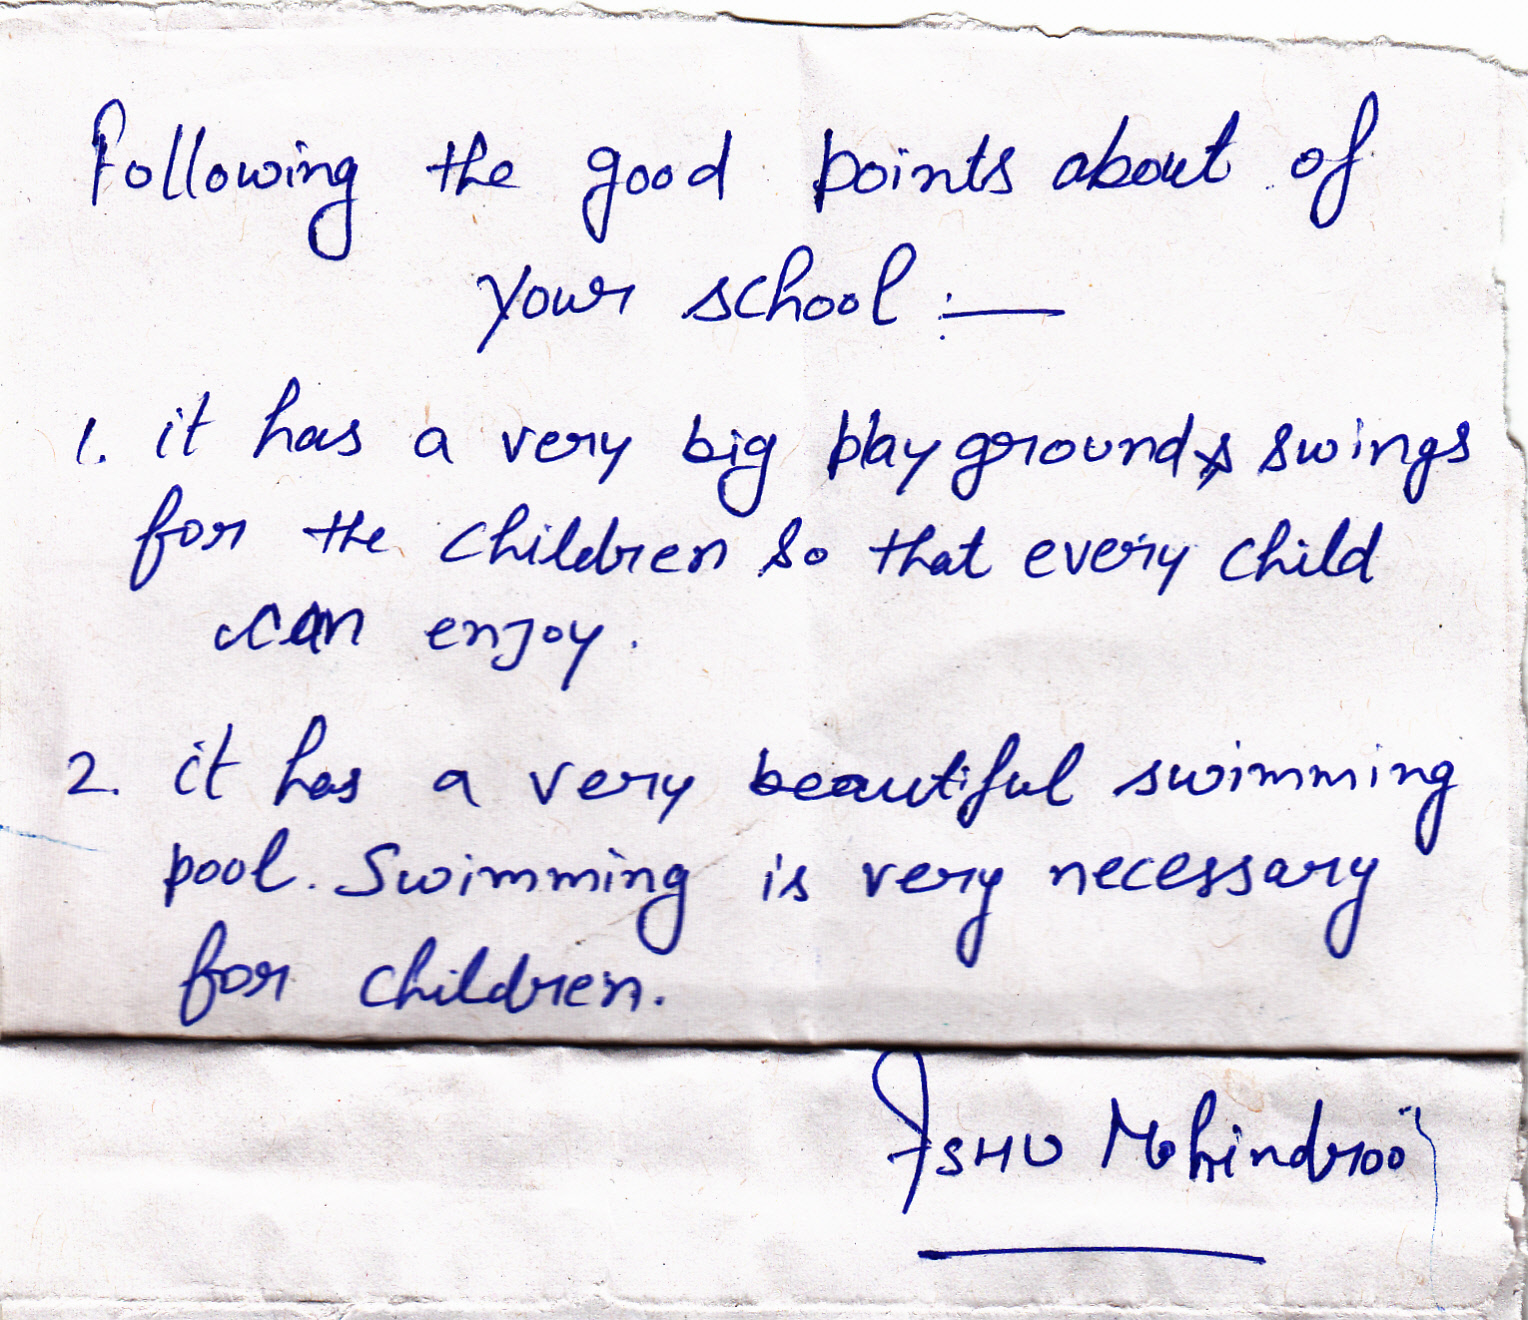 Following the good points about of
your school :—
1. it has a very big play ground & swings
for the children so that every child
can enjoy.
2. it has a very beautiful swimming
pool. Swimming is very necessary
for children.
ISHU Mohindroo